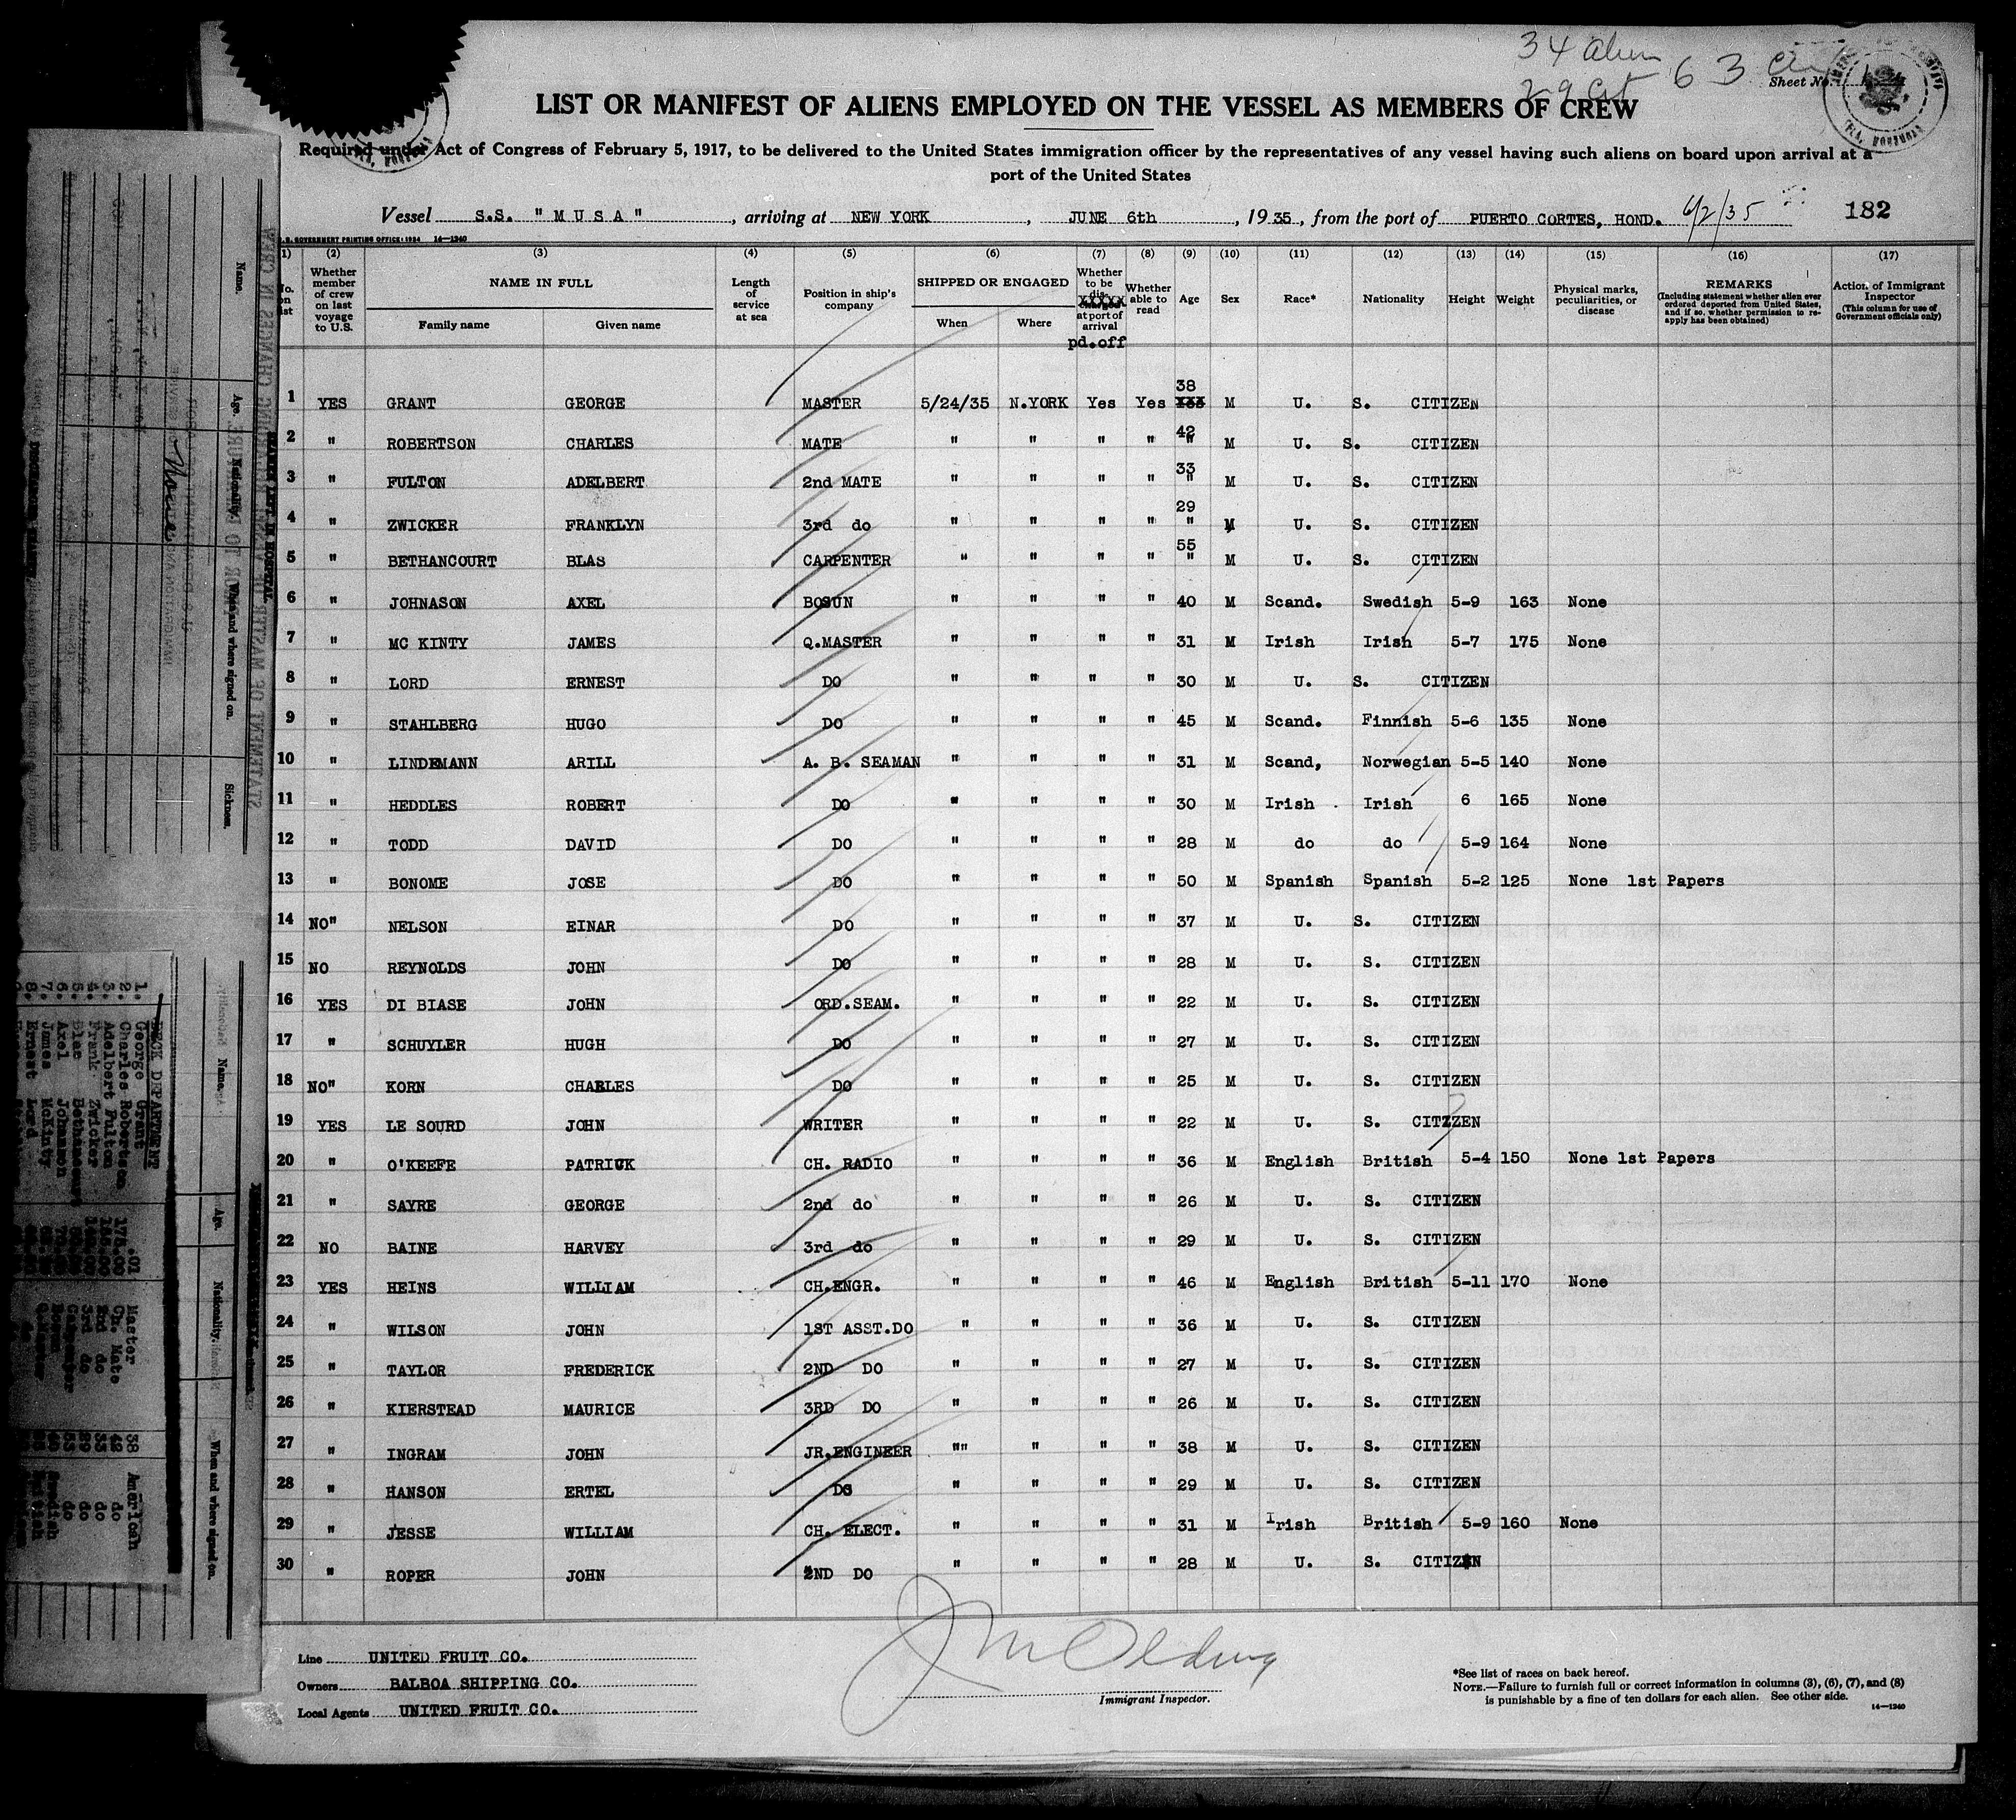 34 alien
29 Cit 63
Sheet No. 1
LIST OR MANIFEST OF ALIENS EMPLOYED ON THE VESSEL AS MEMBERS OF CREW
Required under Act of Congress of February 5, 1917, to be delivered to the United States immigration officer by the representatives of any vessel having such aliens on board upon arrival at a
port of the United States
Vessel S.S. "MUSA", arriving at NEW YORK, JUNE 6th, 1935, from the port of PUERTO CORTES, HOND. 6/2/35 182
GOVERNMENT PRINTING OFFICE: 1934 14—1240
(1) (2) (3) (4) (5) (6) (7) (8) (9) (10) (11) (12) (13) (14) (15) (16) (17)
No. on list Whether member of crew on last voyage to U.S. NAME IN FULL Family name Given name Length of service at sea Position in ship's company SHIPPED OR ENGAGED When Where Whether to be dis- XXXXX at port of arrival pd.off Whether able to read Age Sex Race* Nationality Height Weight Physical marks, peculiarities, or disease REMARKS (Including statement whether alien ever ordered deported from United States, and if so, whether permission to re-apply has been obtained) Action of Immigrant Inspector (This column for use of Government officials only)
1 YES GRANT GEORGE MASTER 5/24/35 N.YORK Yes Yes 38 M U. S. CITIZEN
2 " ROBERTSON CHARLES MATE " " " " 42 " M U. S. CITIZEN
3 " FULTON ADELBERT 2nd MATE " " " " 33 " M U. S. CITIZEN
4 " ZWICKER FRANKLYN 3rd do " " " " 29 " M U. S. CITIZEN
5 " BETHANCOURT BLAS CARPENTER " " " " 55 " M U. S. CITIZEN
6 " JOHNASON AXEL BOSUN " " " " 40 M Scand. Swedish 5-9 163 None
7 " MC KINTY JAMES Q.MASTER " " " " 31 M Irish Irish 5-7 175 None
8 " LORD ERNEST DO " " " " 30 M U. S. CITIZEN
9 " STAHLBERG HUGO DO " " " " 45 M Scand. Finnish 5-6 135 None
10 " LINDEMANN ARILL A. B. SEAMAN " " " " 31 M Scand, Norwegian 5-5 140 None
11 " HEDDLES ROBERT DO " " " " 30 M Irish . Irish 6 165 None
12 " TODD DAVID DO " " " " 28 M do do 5-9 164 None
13 " BONOME JOSE DO " " " " 50 M Spanish Spanish 5-2 125 None 1st Papers
14 NO" NELSON EINAR DO " " " " 37 M U. S. CITIZEN
15 NO REYNOLDS JOHN DO " " " " 28 M U. S. CITIZEN
16 YES DI BIASE JOHN ORD.SEAM. " " " " 22 M U. S. CITIZEN
17 " SCHUYLER HUGH DO " " " " 27 M U. S. CITIZEN
18 NO" KORN CHARLES DO " " " " 25 M U. S. CITIZEN
19 YES LE SOURD JOHN WRITER " " " " 22 M U. S. CITZZEN
20 " O'KEEFE PATRICK CH. RADIO " " " " 36 M English British 5-4 150 None 1st Papers
21 " SAYRE GEORGE 2nd do " " " " 26 M U. S. CITIZEN
22 NO BAINE HARVEY 3rd do " " " " 29 M U. S. CITIZEN
23 YES HEINS WILLIAM CH.ENGR. " " " " 46 M English British 5-11 170 None
24 " WILSON JOHN 1ST ASST.DO " " " " 36 M U. S. CITIZEN
25 " TAYLOR FREDERICK 2ND DO " " " " 27 M U. S. CITIZEN
26 " KIERSTEAD MAURICE 3RD DO " " " " 26 M U. S. CITIZEN
27 " INGRAM JOHN JR.ENGINEER "" " " " 38 M U. S. CITIZEN
28 " HANSON ERTEL DO " " " " 29 M U. S. CITIZEN
29 " JESSE WILLIAM CH. ELECT. " " " " 31 M Irish British 5-9 160 None
30 " ROPER JOHN 2ND DO " " " " 28 M U. S. CITIZEN
Line UNITED FRUIT CO.
Owners BALBOA SHIPPING CO.
Local Agents UNITED FRUIT CO.
Immigrant Inspector.
*See list of races on back hereof.
NOTE.—Failure to furnish full or correct information in columns (3), (6), (7), and (8)
is punishable by a fine of ten dollars for each alien. See other side.
14—1240
Name. Age. Nationality. When and where signed on. Sickness.
None
Name. Age. Nationality. When and where signed on.
DECK DEPARTMENT
1. George Grant Master 38 American
2. Charles Robertson Ch. Mate 42 do
3. Adelbert Fulton 2nd do 33 do
4. Frank Zwicker 3rd do 29 do